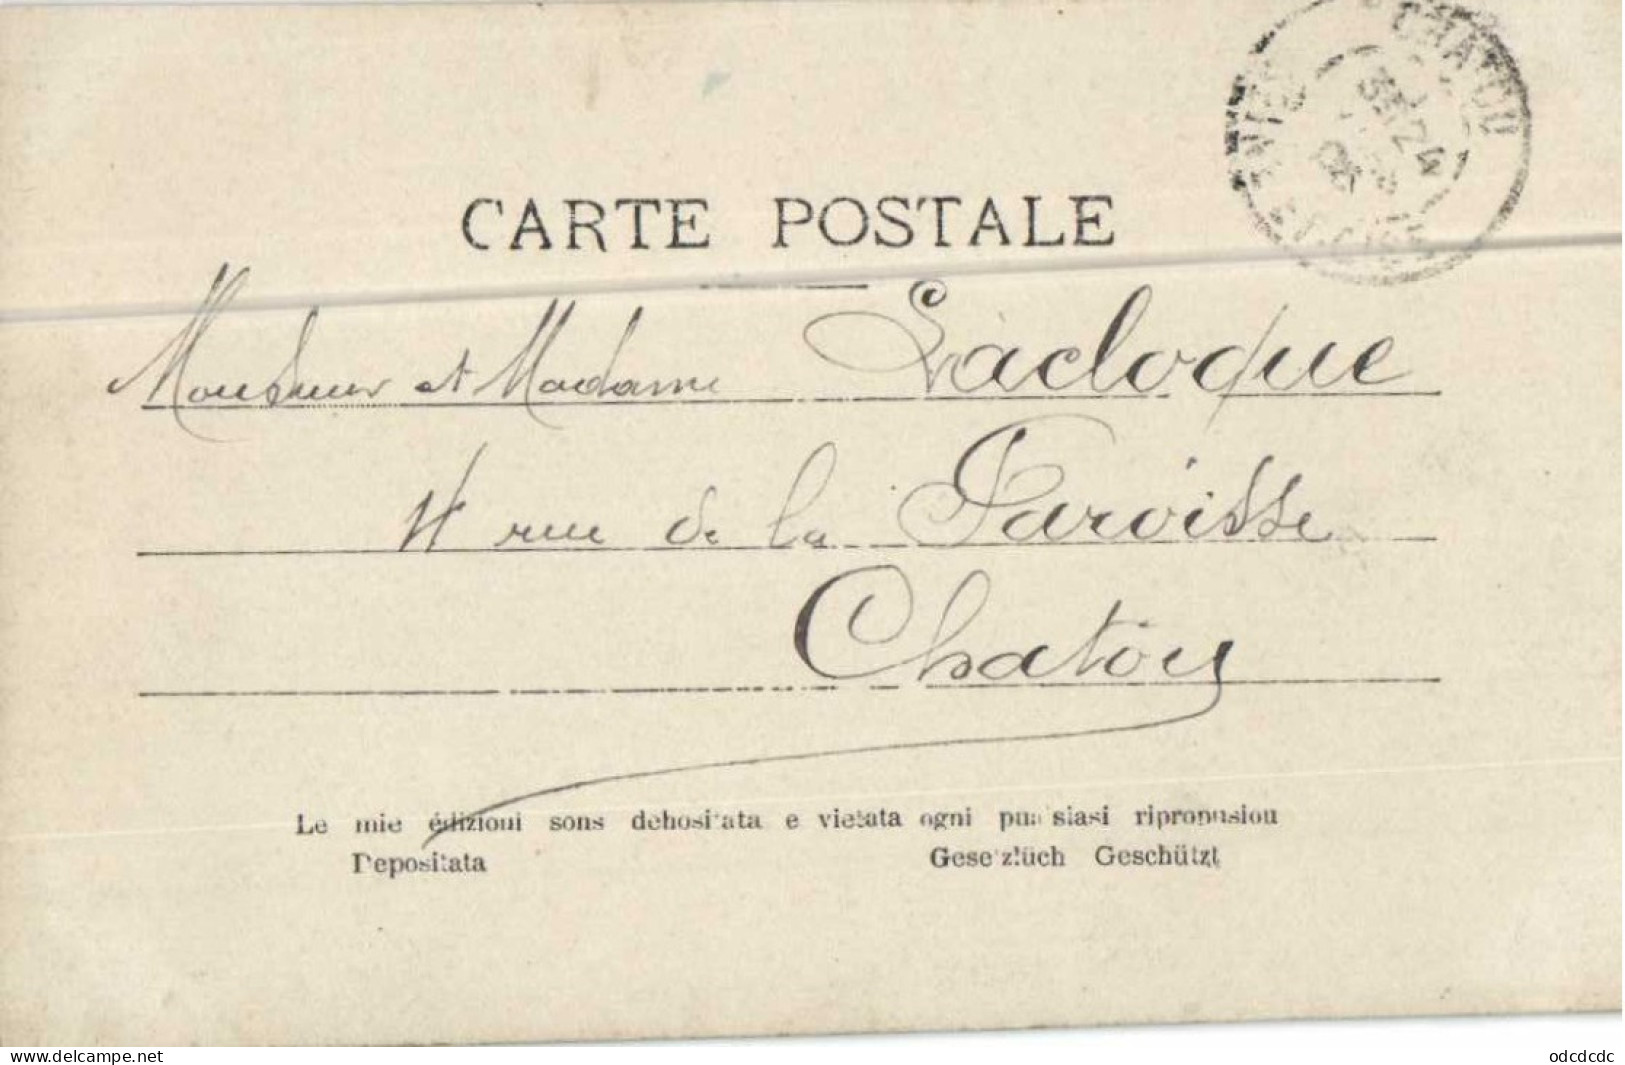 CHATOU
CARTE POSTALE
Monsieur et Madame Lacloque
4 rue de la Paroisse
Chatou
Le mie édizioni sons dehositata e vietata ogni puasiasi ripropusiou
Depositata Gesetzlüch Geschützt
www.delcampe.net
odcdcdc